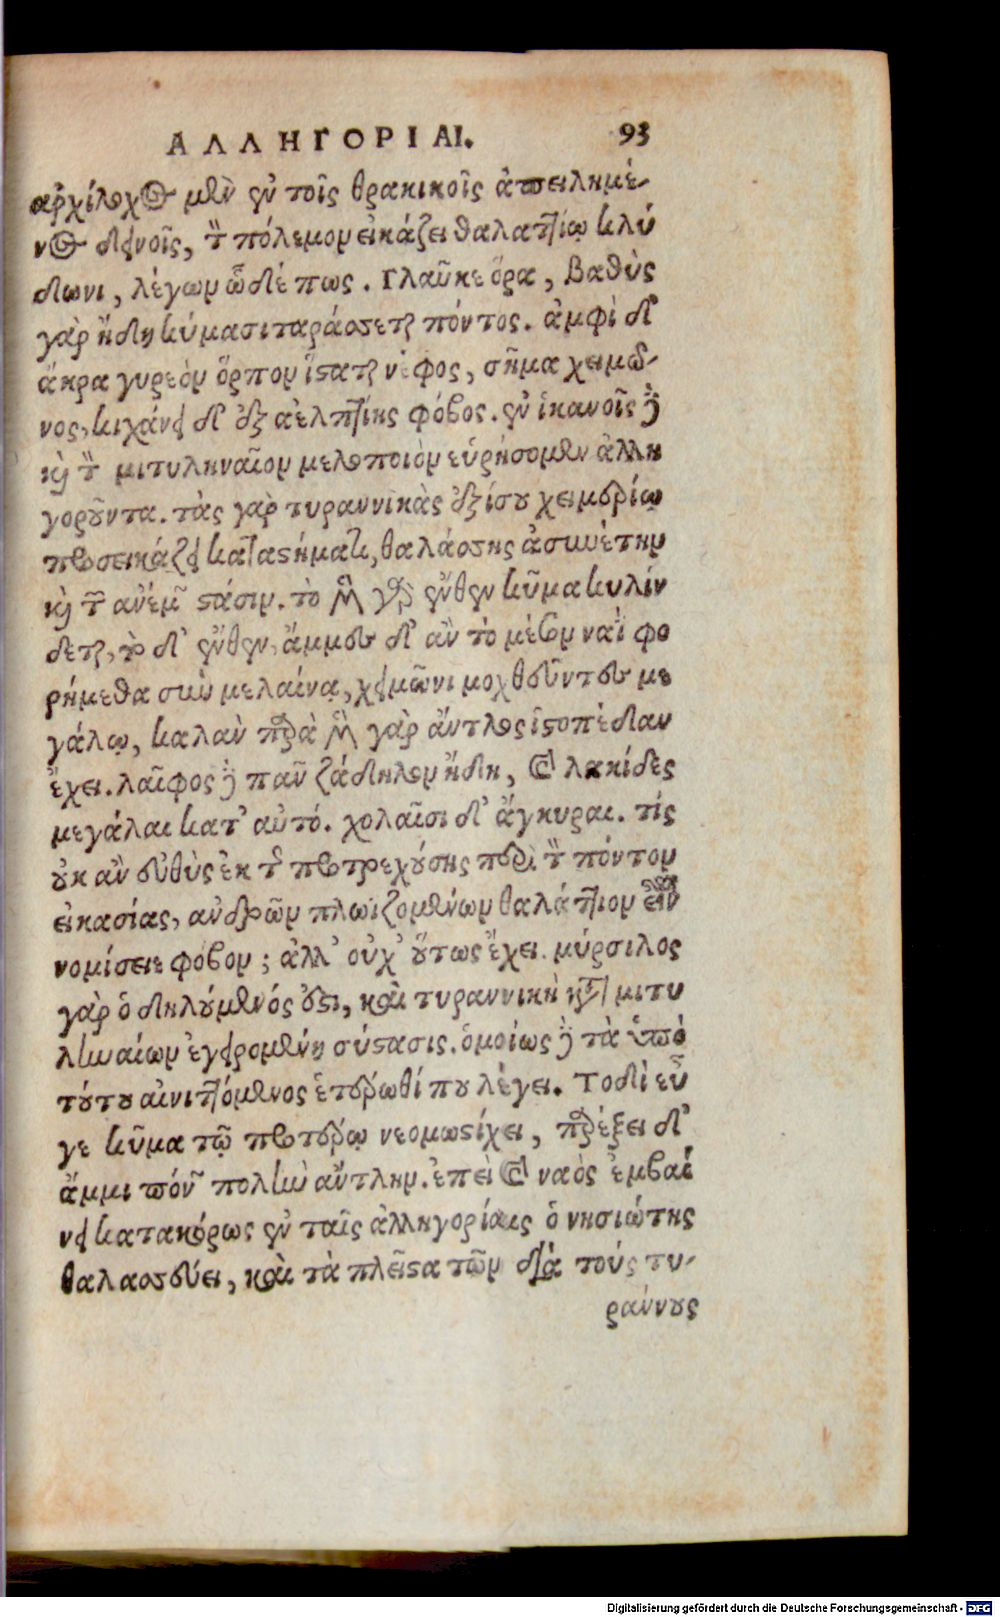 ΑΛΛΗΓΟΡΙΑΙ. 93
αρχίλοχος μὲν ἐν τοῖς θρᾳκικοῖς ἀπειλημέ-
νος δεινοῖς, τὸν πόλεμον εἰκάζει θαλαττίῳ κλύ
δωνι, λέγων ὧδέ πως. Γλαῦκε ὅρα, βαθὺς
γὰρ ἤδη κύμασι ταράσσεται πόντος. ἀμφὶ δ'
ἄκρα γυρεὸν ὄρπον ἵσταται νέφος, σῆμα χειμῶ-
νος, κιχάνει δ' ἐξ αἐλπτίης φόβος. ἐν ἱκανοῖς δὲ
καὶ τὸν μιτυληναῖον μελοποιὸν εὑρήσομεν ἀλλη
γοροῦντα. τὰς γὰρ τυραννικὰς ἐξίσου χειμερίῳ
προσεικάζει καταστήματι, θαλάσσης ἀσυνέτην
καὶ τῶν ἀνέμων στάσιν. τὸ μὲν γὰρ ἔνθεν κῦμα κυλίν
δεται, τὸ δ' ἔνθεν, ἄμμες δ' ἂν τὸ μέσον ναῒ φο
ρήμεθα σὺν μελαίνᾳ, χειμῶνι μοχθεῦντες με
γάλῳ, καλὰν παρὰ μὲν γὰρ ἄντλος ἱστοπέδαν
ἔχει. λαῖφος δὲ παν ζάδηλον ἤδη, καὶ λακίδες
μεγάλαι κατ' αὐτό. χολαῖσι δ' ἄγκυραι. τίς
οὐκ ἂν εὐθὺς ἐκ τῆς προτρεχούσης περὶ τὸν πόντον
εἰκασίας, ἀνδρῶν πλωιζομένων θαλάττιον εἶναι
νομίσειε φόβον; ἀλλ' οὐχ' οὕτως ἔχει. μύρσιλος
γὰρ ὁ δηλούμενός ἐστι, καὶ τυραννικὴ κατὰ μιτυ
ληναίων ἐγειρομένη σύστασις. ὁμοίως δὲ τὰ ὑπὸ
τούτου αἰνιττόμενος ἑτέρωθί που λέγει. Τοδὶ εὖ
γε κῦμα τῷ προτέρῳ νεομωστίχει, παρέξει δ'
ἄμμι πόνον πολὺν ἄντλην. ἐπεὶ καὶ ναὸς ἐμβαί
νει κατακόρως ἐν ταῖς ἀλληγορίαις ὁ νησιώτης
θαλασσεύει, καὶ τὰ πλεῖστα τῶν διὰ τούς τυ-
ράννους
Digitalisierung gefördert durch die Deutsche Forschungsgemeinschaft - DFG